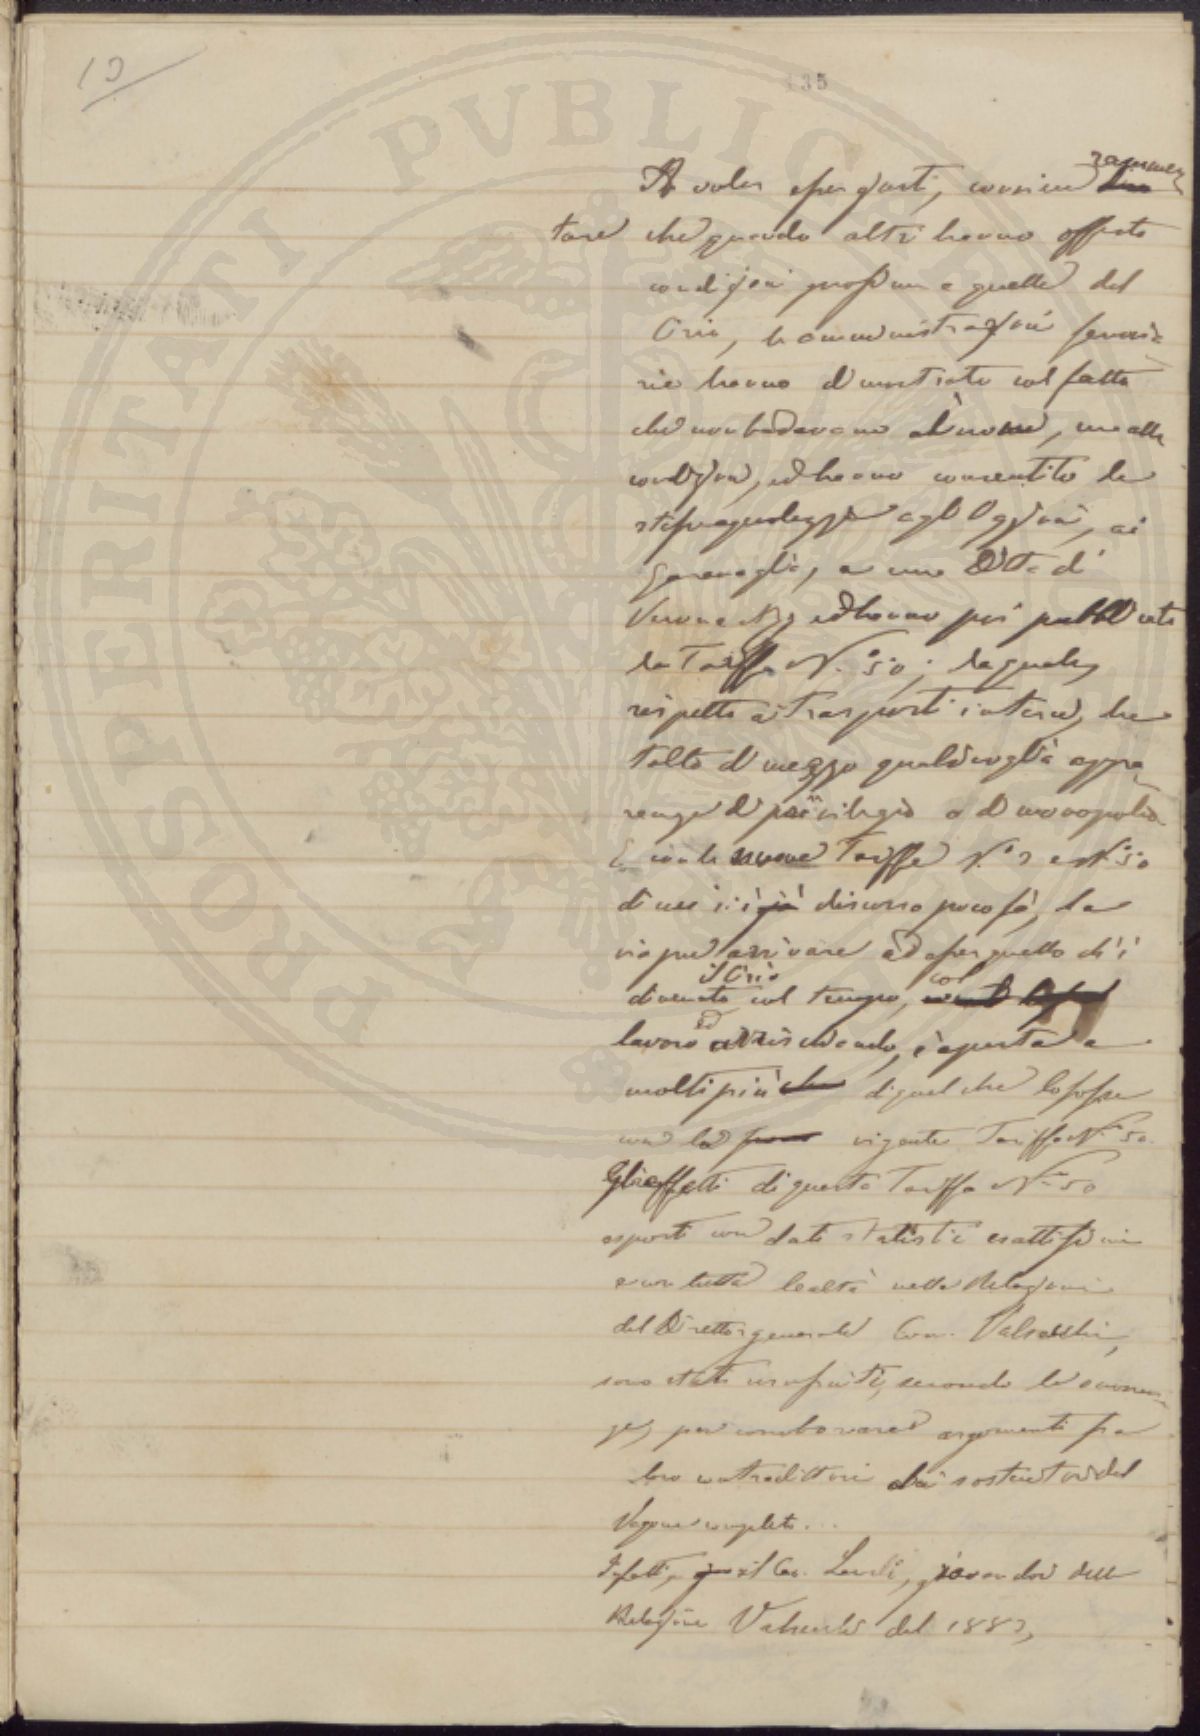 13
135
PROSPERITATI PVBLICAE
A voler esser giusti, conviene rammen
tare che quando altri hanno offerto
condizioni prossime a quelle del
Cirio, le amministrazioni ferrovia
rie hanno dimostrato col fatto
che non badavano al nome, ma alle
condizioni, ed hanno consentito le
stesse agli, ai
a una Ditta di
Verona ed hanno poi pubblicato
la Tariffa N.° 50; la quale,
rispetto ai trasporti interni, ha
tolto di mezzo qualsivoglia appa
renza di privilegio o di monopolio.
E con le nuove Tariffe N.° 3 e N.° 50
di cui si è già discorso poco fà, la
via per arrivare ad esser quello ch'è
divenuto il Cirio col tempo, col
lavoro ed arrischiando, è aperta a
molti più che di quel che lo fosse
con la vigente Tariffa N.° 50.
Gli effetti di questa Tariffa N.° 50
esposti con dati statistici esattissimi
e con tutta lealtà nella Relazione
del Direttore generale Com. Valsecchi,
sono stati usufruiti, secondo le occorren
ze, per corroborare argomenti fra
loro contradittori dai sostenitori del
Vagone completo...
Infatti, il Cav. Landi, giovandosi della
Relazione Valsecchi del 1883,